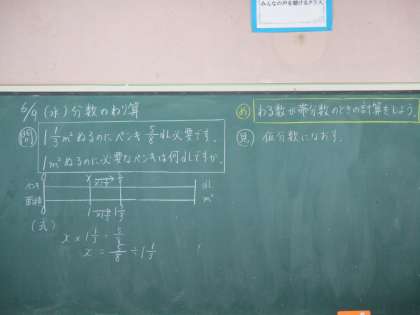 みんなの声を聴けるクラス
6/9 (水) 分数のわり算
問 1 1/3 m² ぬるのにペンキ 5/8 dL 必要です。
1 m² ぬるのに必要なペンキは何dLですか。
め わる数が帯分数のときの計算をしよう。
見 仮分数になおす。
ペンキ 0 x 5/8 dL
面積 0 1 1 1/3 m²
(式)
x × 1 1/3 = 5/8
x = 5/8 ÷ 1 1/3